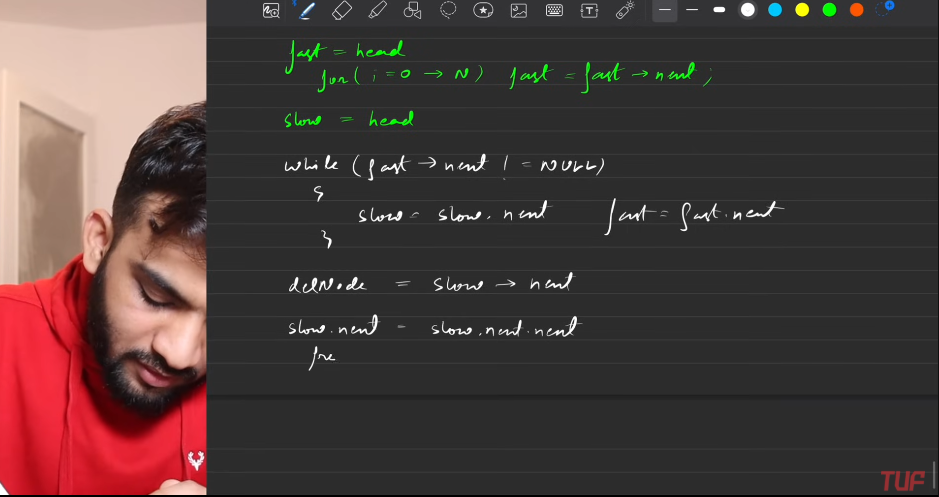 fast = head
for( i = 0 → N) fast = fast → next ;
slow = head
while ( fast → next ! = NULL)
{
slow = slow. next fast = fast. next
}
delNode = slow → next
slow. next = slow. next. next
fre
TUF